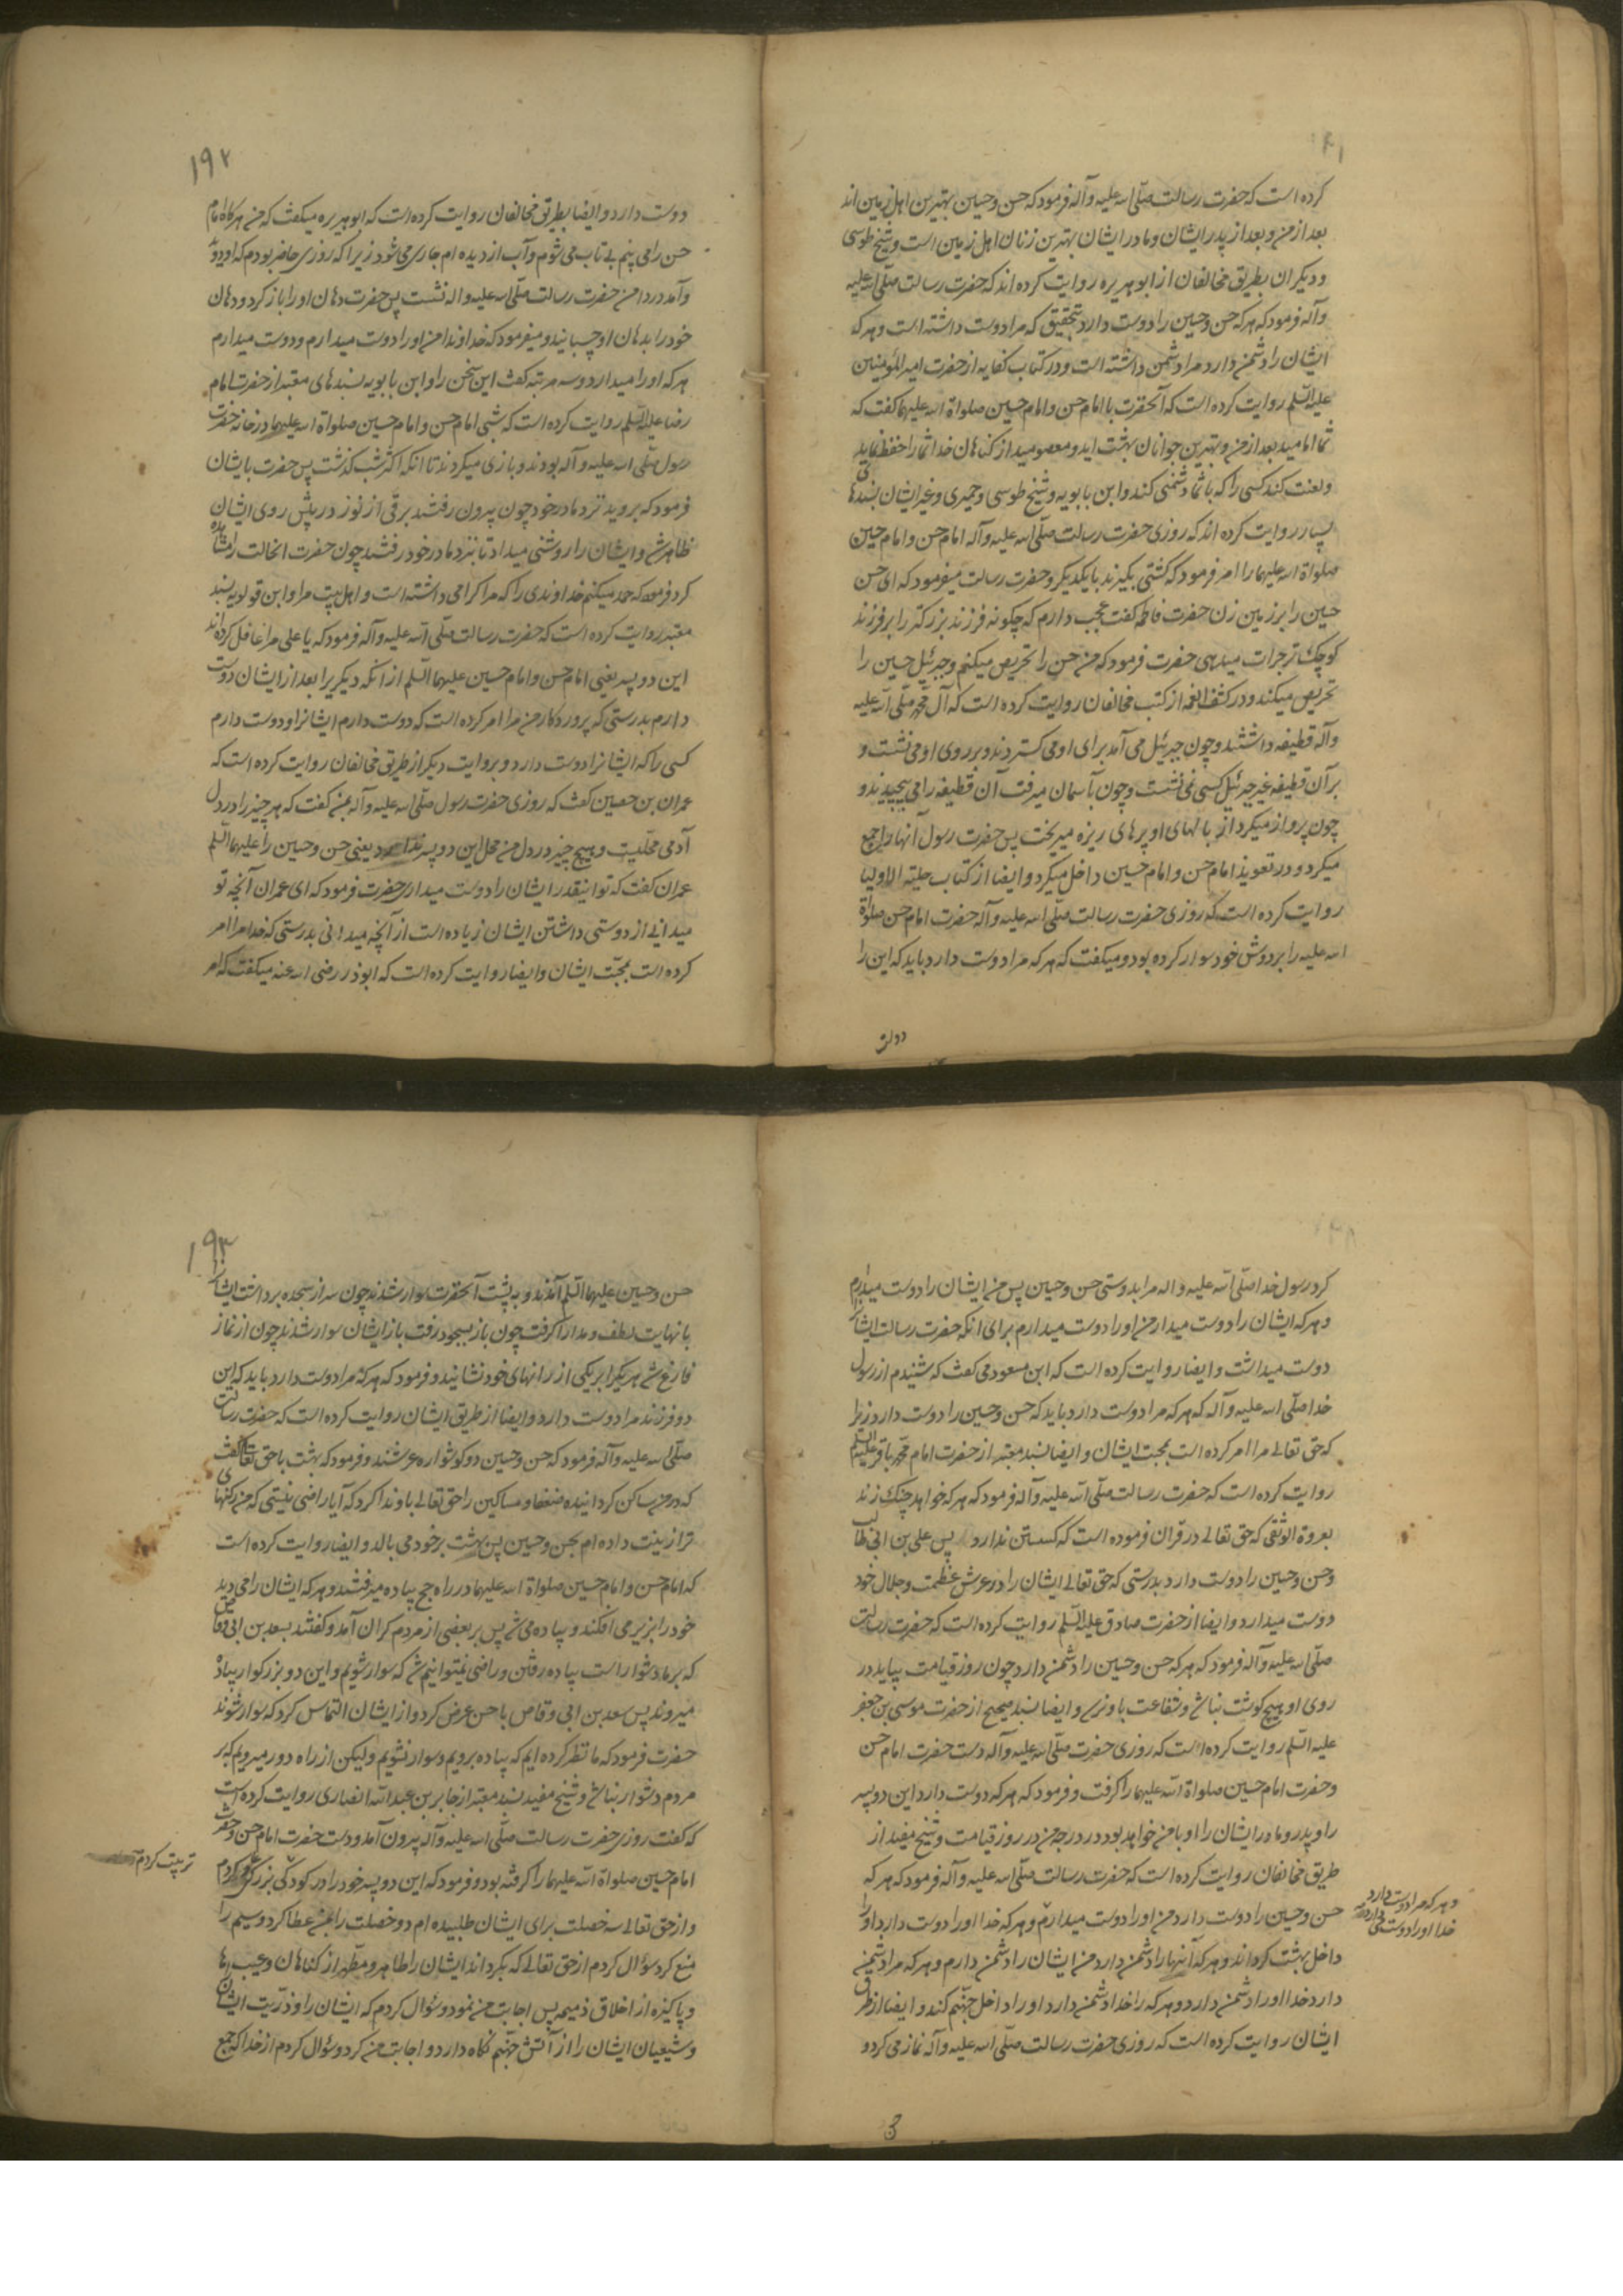 کرده است که حضرت رسالت صلّی الله علیه وآله فرمود که حسن و حسین بهترین اهل زمین اند
بعد از من و بعد از پدر ایشان و مادر ایشان بهترین زنان اهل زمین است و شیخ طوسی
و دیکران بطریق مخالفان از ابو هریره روایت کرده اند که حضرت رسالت صلّی الله علیه
وآله فرمود که هر که حسن و حسین را دوست دارد بتحقیق که مرا دوست داشته است و هر که
ایشان را دشمن دارد مرا دشمن داشته است و در کتاب کفایه از حضرت امیر المؤمنین
علیه السّلم روایت کرده است که آنحضرت با امام حسن و امام حسین صلواة الله علیهما کفت که
شما امامید بعد از من و بهترین جوانان بهشت اید و معصومید از کناهان خدا شما را حفظ نماید
و لعنت کند کسی را که با شما دشمنی کند و ابن بابویه و شیخ طوسی و حمیری و غیر ایشان بسندهای
بسیار روایت کرده اند که روزی حضرت رسالت صلّی الله علیه وآله امام حسن و امام حسین
صلواة الله علیهما را امر فرمود که کشتی بکیرند با یکدیکر و حضرت رسالت میفرمود که ای حسن
حسین را بر زمین زن حضرت فاطمه کفت عجب دارم که چکونه فرزند بزرکتر را بر فرزند
کوچک تر جرات میدهی حضرت فرمود که من حسن را تحریص میکنم و جبرئیل حسین را
تحریص میکند و در کشف الغمه از کتب مخالفان روایت کرده است که آل محمّد صلّی الله علیه
وآله قطیفه داشتند و چون جبرئیل می آمد برای او می کستردند و بر روی او می نشست و
بر آن قطیفه غیر جبرئیل کسی نمی نشست و چون بآسمان میرفت آن قطیفه را می پیچیدند و
چون پرواز میکرد از بالهای او پرهای ریزه میریخت پس حضرت رسول آنها را جمع
میکرد و در تعویذ امام حسن و امام حسین داخل میکرد و ایضا از کتاب حلیته الاولیا
روایت کرده است که روزی حضرت رسالت صلّی الله علیه وآله حضرت امام حسن صلواة
الله علیه را بر دوش خود سوار کرده بود و میکفت که هر که مرا دوست دارد باید که این را
دوست
۱۹۲
دوست دارد و ایضا بطریق مخالفان روایت کرده است که ابو هریره میکفت که من هر کاه امام
حسن را می بینم بی تاب می شوم و آب از دیده ام جاری می شود زیرا که روزی حاضر بودم که او دوید
وآمد در دامن حضرت رسالت صلّی الله علیه واله نشست پس حضرت دهان او را باز کرد و دهان
خود را بدهان او چسبانید و میفرمود که خداوندا من او را دوست میدارم و دوست میدارم
هر که او را میدارد و سه مرتبه کفت این سخن را و ابن بابویه بسندهای معتبر از حضرت امام
رضا علیه السّلم روایت کرده است که شبی امام حسن و امام حسین صلواة الله علیهما در خانه حضرت
رسول صلّی الله علیه وآله بودند و بازی میکردند تا انکه اکثر شب کذشت پس حضرت بایشان
فرمود که بروید نزد مادر خود چون بیرون رفتند برقی از نور در پیش روی ایشان
ظاهر شد و ایشان را روشنی میداد تا بنزد مادر خود رفتند چون حضرت انحالت را مشاهده
کرد فرمود که حمد میکنم خداوندی را که مرا کرامی داشته است و اهل بیت مرا و ابن قولویه بسند
معتبر روایت کرده است که حضرت رسالت صلّی الله علیه وآله فرمود که یا علی مرا غافل کرده اند
این دو پسر یعنی امام حسن و امام حسین علیهما السّلم از آنکه دیکری را بعد از ایشان دوست
دارم بدرستی که پروردکار من مرا امر کرده است که دوست دارم ایشانرا و دوست دارم
کسی را که ایشانرا دوست دارد و بروایت دیکر از طریق مخالفان روایت کرده است که
عمران بن حصین کفت که روزی حضرت رسول صلّی الله علیه وآله بمن کفت که هر چیز را در دل
آدمی محلّیست و هیچ چیز در دل من محل این دو پسر ندارد یعنی حسن و حسین را علیهما السّلم
عمران کفت که تو اینقدر ایشان را دوست میداری حضرت فرمود که ای عمران آنچه تو
میدانی از دوستی داشتن ایشان زیاده است از آنچه میدانی بدرستی که خدا مرا امر
کرده است بمحبّت ایشان و ایضا روایت کرده است که ابوذر رضی الله عنه میکفت که امر
کرد رسول خدا صلّی الله علیه واله مرا بدوستی حسن و حسین پس من ایشان را دوست میدارم
و هر که ایشان را دوست میدارد من او را دوست میدارم برای انکه حضرت رسالت ایشان را
دوست میداشت و ایضا روایت کرده است که ابن مسعود می کفت که شنیدم از رسول
خدا صلّی الله علیه وآله که هر که مرا دوست دارد باید که حسن و حسین را دوست دارد زیرا
که حق تعالی مرا امر کرده است بمحبت ایشان و ایضا بسند معتبر از حضرت امام محمّد باقر علیه السّلم
روایت کرده است که حضرت رسالت صلّی الله علیه وآله فرمود که هر که خواهد چنک زند
بعروة الوثقی که حق تعالی در قران فرموده است که کسستن ندارد پس علی بن ابی طالب
وحسن و حسین را دوست دارد بدرستی که حق تعالی ایشان را در عرش عظمت و جلال خود
دوست میدارد و ایضا از حضرت صادق علیه السّلم روایت کرده است که حضرت رسالت
صلّی الله علیه وآله فرمود که هر که حسن و حسین را دشمن دارد چون روز قیامت بیاید در
روی او هیچ کوشت نباشد و شفاعت باو نرسد و ایضا بسند صحیح از حضرت موسی بن جعفر
علیه السّلم روایت کرده است که روزی حضرت صلّی الله علیه وآله دست حضرت امام حسن
و حضرت امام حسین صلواة الله علیهما را کرفت و فرمود که هر که دوست دارد این دو پسر
را و پدر و مادر ایشان را او با من خواهد بود در درجه من در روز قیامت و شیخ مفید از
طریق مخالفان روایت کرده است که حضرت رسالت صلّی الله علیه وآله فرمود که هر که
حسن و حسین را دوست دارد من او را دوست میدارم و هر که خدا او را دوست دارد او را
داخل بهشت کرداند و هر که آنها را دشمن دارد من ایشان را دشمن دارم و هر که مرا دشمن
دارد خدا او را دشمن دارد و هر که را خدا دشمن دارد او را داخل جهنّم کند و ایضا از طریق
ایشان روایت کرده است که روزی حضرت رسالت صلّی الله علیه وآله نماز می کرد و
و هر که مرا دوست دارد
خدا او را دوست دارد
۱۹۳
حسن و حسین علیهما السّلم آمدند و به پشت آنحضرت سوار شدند چون سر از سجده برداشت ایشان را
با نهایت لطف و مدارا کرفت چون باز بسجود رفت باز ایشان سوار شدند چون از نماز
فارغ شد هر یک را بر یکی از رانهای خود نشانید و فرمود که هر که مرا دوست دارد باید که این
دو فرزند مرا دوست دارد و ایضا از طریق ایشان روایت کرده است که حضرت رسالت
صلّی الله علیه وآله فرمود که حسن و حسین دو کوشواره عرشند و فرمود که بهشت با حق تعالی کفت
که در من ساکن کردانیده ضعفا و مساکین را حق تعالی باو ندا کرد که آیا راضی نیستی که من رکنهای
ترا زینت داده ام بحسن و حسین پس بهشت بر خود می بالد و ایضا روایت کرده است
که امام حسن و امام حسین صلواة الله علیهما در راه حج پیاده میرفتند و هر که ایشان را می دید
خود را بزیر می افکند و پیاده می شد پس بر بعضی از مردم کران آمد و کفتند بسعد بن ابی وقاص
که بر ما دشوار است پیاده رفتن و راضی نمیتوانیم شد که سوار شویم و این دو بزرکوار پیاده
میروند پس سعد بن ابی وقاص با حسن عرض کرد و از ایشان التماس کرد که سوار شوند
حضرت فرمود که ما نظر کرده ایم که پیاده برویم و سوار نشویم و لیکن از راه دور میرویم که بر
مردم دشوار نباشد و شیخ مفید بسند معتبر از جابر بن عبد الله انصاری روایت کرده است
که کفت روزی حضرت رسالت صلّی الله علیه وآله بیرون آمد و دست حضرت امام حسن و حضرت
امام حسین صلواة الله علیهما را کرفته بود و فرمود که این دو پسر خود را در کودکی بزرکی کردم
و از حق تعالی سه خصلت برای ایشان طلبیده ام دو خصلت را بمن عطا کرد و سیم را
منع کرد سؤال کردم از حق تعالی که بکرداند ایشان را طاهر و مطهر از کناهان و عیب ها
و پاکیزه از اخلاق ذمیمه پس اجابت من نمود و سؤال کردم که ایشان را و ذرّیت ایشان
و شیعیان ایشان را از آتش جهنّم نکاه دارد و اجابت من کرد و سؤال کردم از خدا که جمع
تربیت کردم